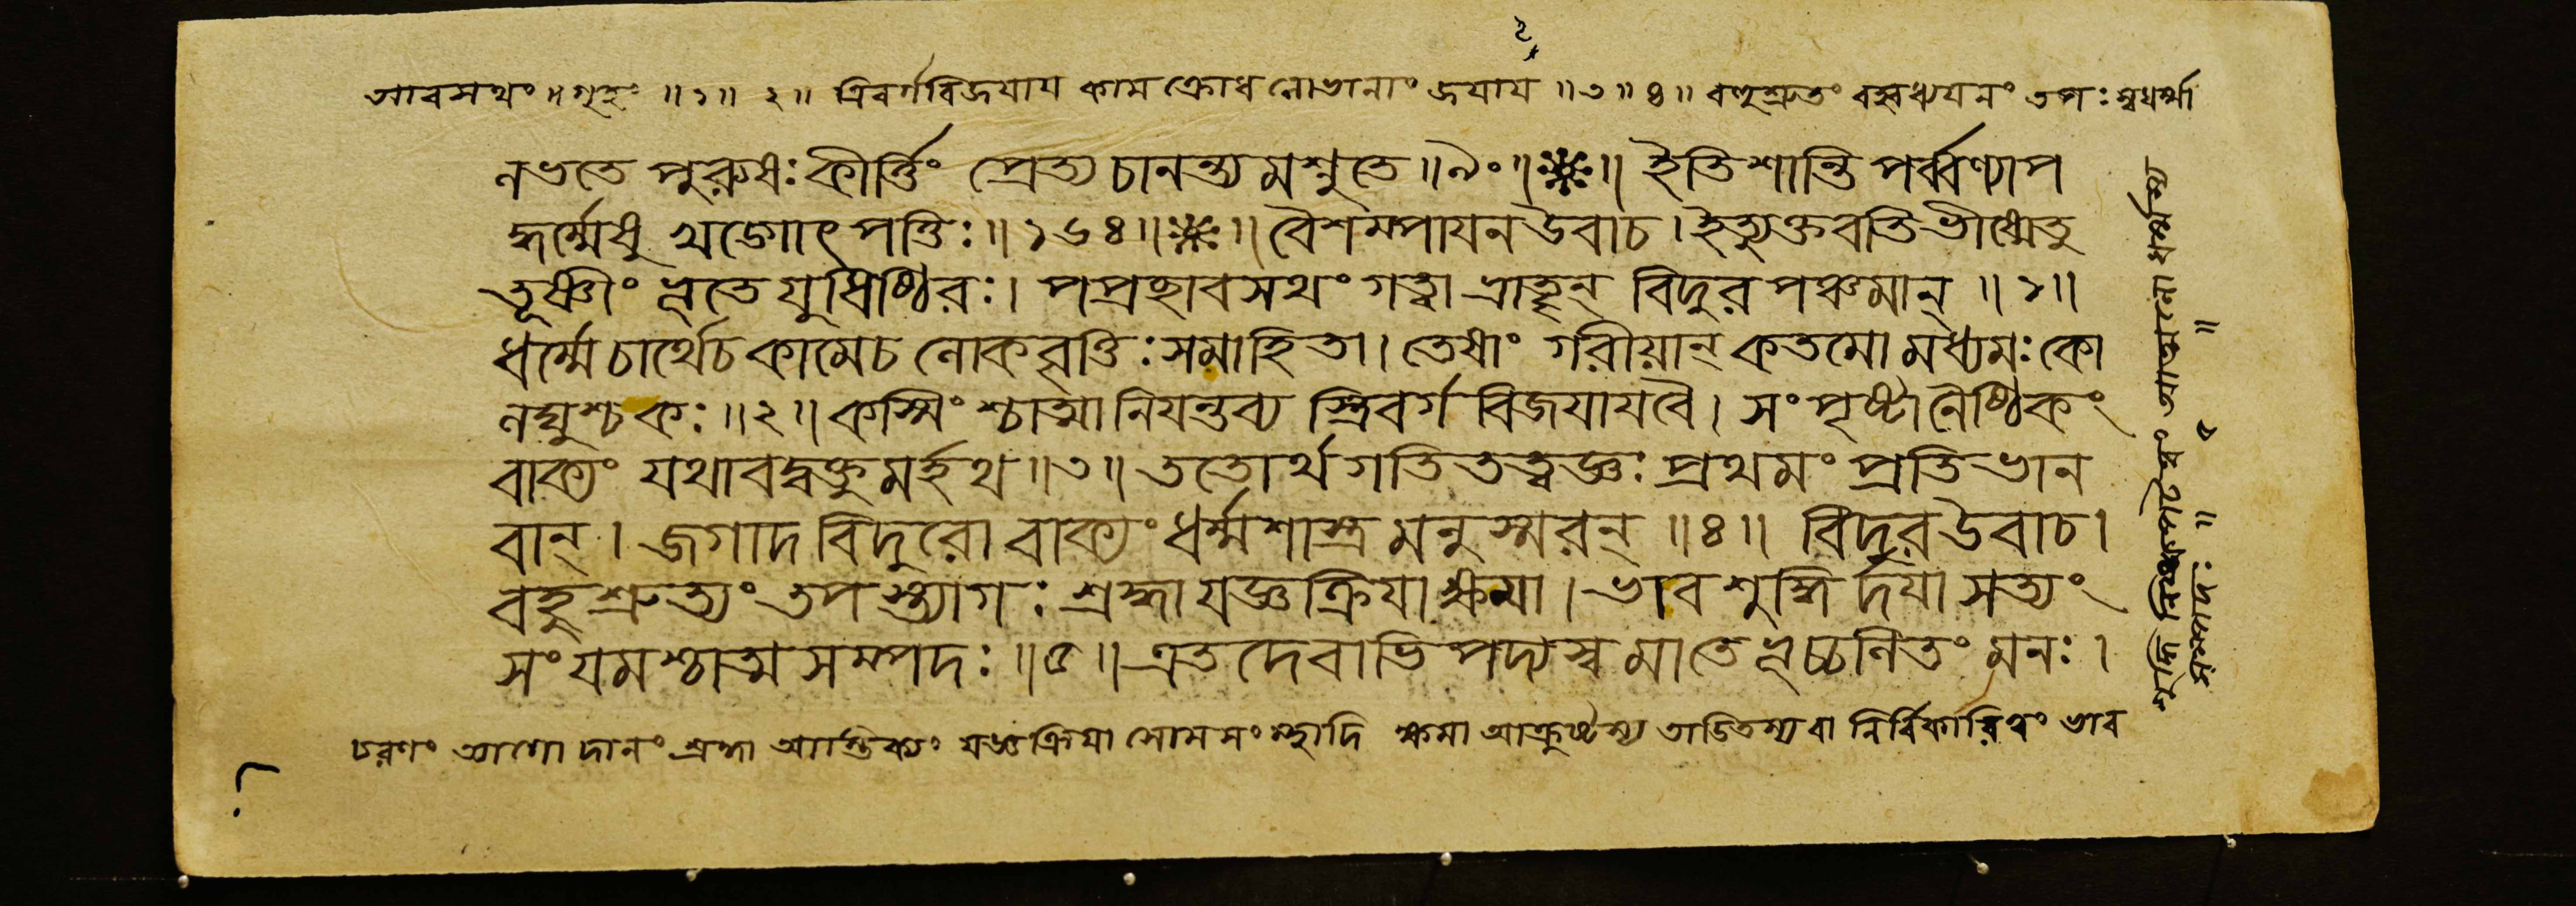 আবসথং গৃহং ॥১॥ ২॥ ত্রিবর্গবিজয়ায় কামক্রোধলোভানাং জয়ায় ॥৩॥৪॥ বহুশ্রুতং বহ্বধ্যয়নং তপঃ স্বধর্ম্মা
লভতে পুরুষঃ কীর্ত্তিং প্রেত্য চানন্ত্যমশ্নুতে ॥৯০॥ ॥ ইতি শান্তিপর্ব্বণ্যাপ
দ্ধর্ম্মেষু খড়্গোৎপত্তিঃ ॥১৬৪॥ ॥ বৈশম্পায়ন উবাচ । ইত্যুক্তবতি ভীষ্মে তু
তূষ্ণীং ভূতে যুধিষ্ঠিরঃ । পপ্রচ্ছাবসথং গত্বা ভ্রাতৄন্ বিদুরপঞ্চমান্ ॥১॥
ধর্ম্মে চার্থে চ কামে চ লোকবৃত্তিঃ সমাহিতা । তেষাং গরীয়ান্ কতমো মধ্যমঃ কো
লঘুশ্চ কঃ ॥২॥ কস্মিংশ্চাত্মা নিয়ন্তব্যস্ত্রিবর্গবিজয়ায় বৈ । সংপৃষ্টা নৈষ্ঠিকং
বাক্যং যথাবদ্বক্তুমর্হথ ॥৩॥ ততোর্থগতিতত্ত্বজ্ঞঃ প্রথমং প্রতিভান
বান্ । জগাদ বিদুরো বাক্যং ধর্ম্মশাস্ত্রমনুস্মরন্ ॥৪॥ বিদুর উবাচ ।
বহুশ্রুত্যং তপস্ত্যাগঃ শ্রদ্ধা যজ্ঞক্রিয়া ক্ষমা । ভাবশুদ্ধির্দয়া সত্যং
সংযমশ্চাত্মসম্পদঃ ॥৫॥ এতদেবাভিপদ্যস্ব মা তে ভূচ্চলিতং মনঃ ।
চরণং ত্যাগো দানং শ্রদ্ধা আস্তিক্যং যজ্ঞক্রিয়া সোমসংস্থাদি ক্ষমা আক্রুষ্টস্য তাড়িতস্য বা নির্বিকারিত্বং ভাব
সম্পদঃ ॥ ৫ ॥